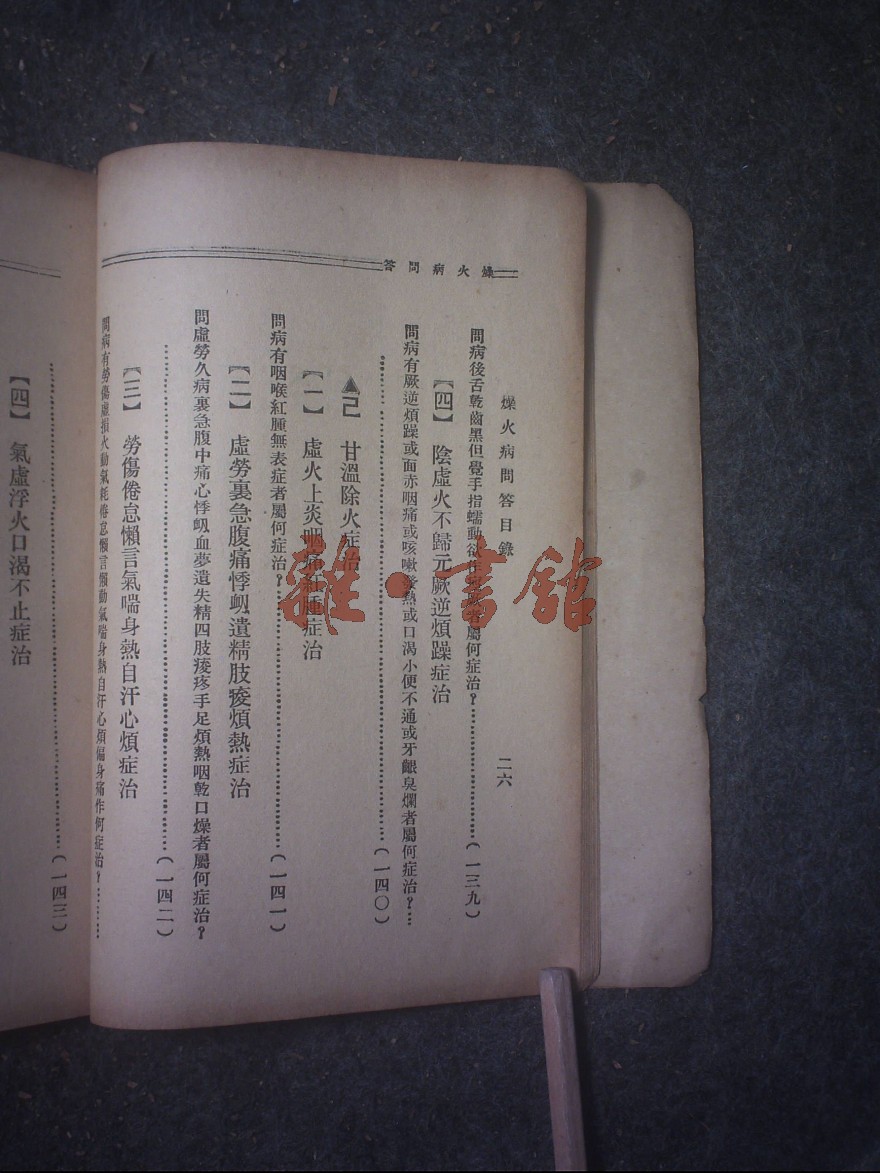 燥火病問答
燥火病問答目錄 二六
問病後舌乾齒黑但覺手指蠕動欲作痙厥者屬何症治?……(一三九)
【四】 陰虛火不歸元厥逆煩躁症治
問病有厥逆煩躁或面赤咽痛或咳嗽發熱或口渴小便不通或牙齦臭爛者屬何症治?…
……(一四〇)
▲己 甘溫除火症治
【一】 虛火上炎咽痛紅腫症治
問病有咽喉紅腫無表症者屬何症治?……(一四一)
【二】 虛勞裏急腹痛悸衂遺精肢痠煩熱症治
問虛勞久病裏急腹中痛心悸衂血夢遺失精四肢痠疼手足煩熱咽乾口燥者屬何症治?
……(一四二)
【三】 勞傷倦怠懶言氣喘身熱自汗心煩症治
問病有勞傷虛損火動氣耗倦怠懶言懶動氣喘身熱自汗心煩偏身痛作何症治?……
……(一四三)
【四】 氣虛浮火口渴不止症治
雜·書館